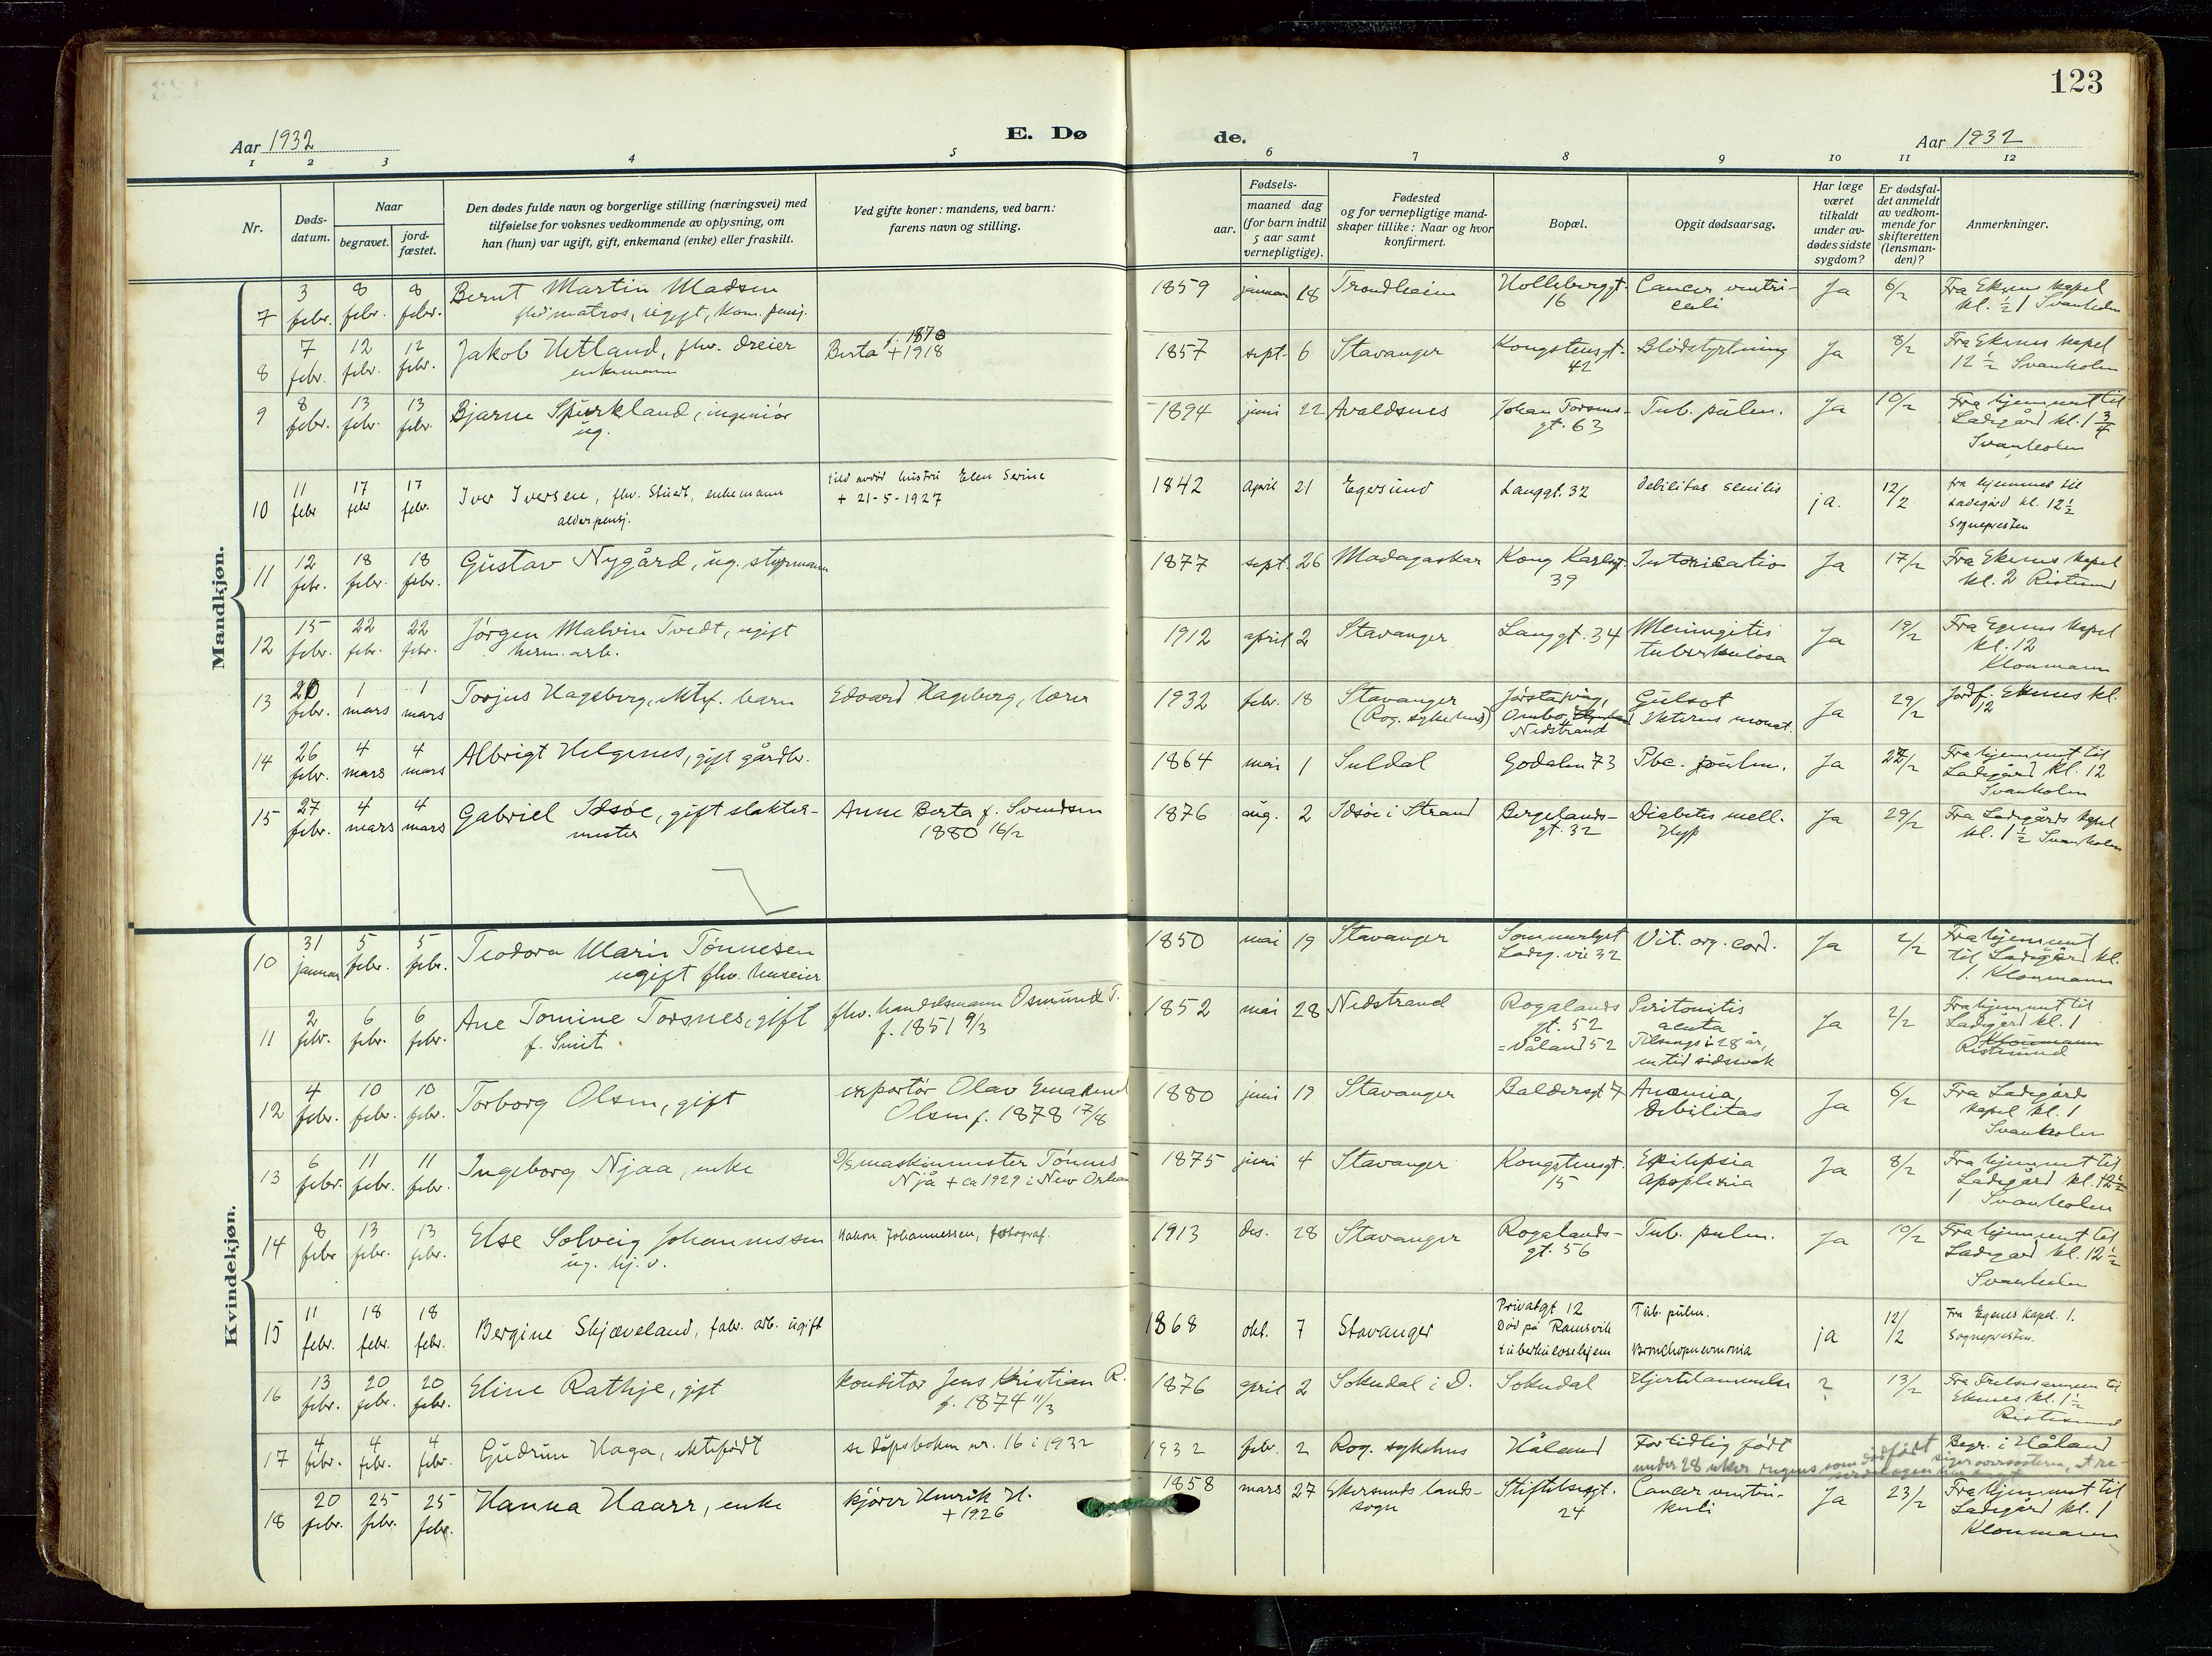 123
Aar 1932
E. Dø
de.
Aar 1932
1 2 3 4 5 6 7 8 9 10 11 12
Nr.
Døds-
datum.
Naar
begravet.
jord-
fæstet.
Den dødes fulde navn og borgerlige stilling (næringsvei) med
tilføielse for voksnes vedkommende av oplysning, om
han (hun) var ugift, gift, enkemand (enke) eller fraskilt.
Ved gifte koner: mandens, ved barn:
farens navn og stilling.
Fødsels-
aar.
maaned dag
(for barn indtil
5 aar samt
vernepligtige).
Fødested
og for vernepligtige mand-
skaper tillike: Naar og hvor
konfirmert.
Bopæl.
Opgit dødsaarsag.
Har læge
været
tilkaldt
under av-
dødes sidste
sygdom?
Er dødsfal-
det anmeldt
av vedkom-
mende for
skifteretten
(lensman-
den)?
Anmerkninger.
Mandkjøn.
7 3 febr. 8 febr. 8 febr. Bernt Martin Madsen
fhv. matros, ugift, kom. pensj.
1859 januar 18 Trondheim Hollebergt. 16 Cancer ventri-
culi Ja 6/2 Fra Eknes kapel
kl. ½1 Svanholm
8 7 febr. 12 febr. 12 febr. Jakob Hetland, fhv. dreier
enkemann
Berta f. 1878
+ 1918
1857 sept. 6 Stavanger Kongstensgt. 42 Blodstyrtning Ja 8/2 Fra Eknes kapel
12 ½ Svanholm
9 8 febr. 13 febr. 13 febr. Bjarne Spurkland, ingeniör
ug.
1894 juni 22 Avaldsnes Johan Torsens-
gt. 63 Tub. pulm. Ja 10/2 Fra hjemmet til
Ladegård kl. 1 ¾
Svanholm
10 11 febr 17 febr 17 febr. Iver Iversen, fhv. Stuert, enkemann
alderpensj.
med avdød hustru Elen Serine
+ 21-5-1927
1842 April 21 Egersund Langgt. 32 debilitas senilis ja. 12/2 fra hjemmet til
Ladegård kl. 12 ½
Sognepresten
11 12 febr. 18 febr. 18 febr. Gustav Nygård, ug. styrmann
1877 sept. 26 Madagaskar Kong Karlsgt. 39 Intoxicatio Ja 17/2 Fra Eknes kapel
kl. 2 Ristesund
12 15 febr. 22 febr. 22 febr. Jörgen Malvin Tvedt, ugift
herm. arb.
1912 april 2 Stavanger Langgt. 34 Meningitis
tuberkulosa Ja 19/2 Fra Egenes kapel
kl. 12
Kloumann
13 20 febr. 1 mars 1 mars Torjus Hageberg, ektef. barn Edvard Hageberg, lærer
1932 febr. 18 Stavanger
(Rog. sykehus) Ombo,
Nedstrand Gulsot
Ikterus neonat. Ja 29/2 Jordf. Eknes kl.
12
14 26 febr. 4 mars 4 mars Albrigt Helgenes, gift gårdbr.
1864 mai 1 Suldal Godalen 73 Pbc. pulm. Ja 27/2 Fra hjemmet til
Ladegård kl. 12
Svanholm
15 27 febr. 4 mars 4 mars Gabriel Idsöe, gift slakter-
mester
Anne Berta f. Svendsen
1880 16/2
1876 aug. 2 Idsöe i Strand Bergelands-
gt. 32 Diabetes mell.
Hyp Ja 29/2 Fra Ladegårds kapel
kl. 1 ½ Svanholm
Kvindekjøn.
10 31 januar 5 febr. 5 febr. Teodora Marie Tönnesen
ugift fhv. huseier
1850 mai 19 Stavanger Sommerlyst
Ladeg. vei 32 Vit. org. cord. Ja 2/2 Fra hjemmet
til Ladegård kl.
1. Kloumann
11 2 febr. 6 febr. 6 febr. Ane Tomine Torsnes, gift
f. Smit
fhv. handelsmann Osmund T.
f. 1851 9/3
1852 mai 28 Nedstrand Rogalands
gt. 52
= Våland 52 Peritonitis
acuta
Tilsengs i 28 år,
en tid sidesvak Ja 2/2 Fra hjemmet til
Ladegård kl. 1
Kloumann
Ristesund
12 4 febr. 10 febr. 10 febr. Torborg Olsen, gift
exportör Olav Emanuel
Olsen f. 1878 17/8
1880 juni 19 Stavanger Baldersgt 7 Anæmia,
debilitas Ja 6/2 Fra Ladegårds
kapel kl. 1
Svanholm
13 6 febr. 11 febr. 11 febr. Ingeborg Njaa, enke
e/e maskinmester Tönnes
Njå + ca 1929 i New Orleans
1875 juni 4 Stavanger Kongstensgt. 15 Epilepsia
Apoplexia Ja 8/2 Fra hjemmet til
Ladegård kl. 12 ½
1 Svanholm
14 8 febr 13 febr. 13 febr. Else Solveig Johannessen
ug. hj. v.
Hakon Johannessen, fotograf.
1913 des. 28 Stavanger Rogalands-
gt. 56 Tub. pulm. Ja 10/2 Fra hjemmet til
Ladegård kl. 12 ½
Svanholm
15 11 febr. 18 febr. 18 febr. Bergine Skjæveland, fabr. arb. ugift
1868 okt. 7 Stavanger Privatgt 12
Död på Ramsvik
tuberkulosehjem Tub. pulm.
Bronchopneumonia ja 12/2 Fra Egenes kapel 1.
Sognepresten.
16 13 febr. 20 febr. 20 febr. Eline Rathje, gift
konditor Jens Kristian R.
f. 1874 11/3
1876 april 2 Sokndal i D. Sokndal Hjertelammelse ? 13/2 Fra Frelsesarmeen til
Eknes kl. 1 ½
Ristesund
17 4 febr. 4 febr. 4 febr. Gudrun Haga, ektefödt
se dåpsboken nr. 16 i 1932
1932 febr. 2 Rog. sykehus Håland For tidlig födt
under 28 uker regnes som dödfödt
Begr. i Håland
18 20 febr. 25 febr. 25 febr. Hanna Haarr, enke
kjörer Henrik H.
+ 1926
1858 mars 27 Ekersunds lands-
sogn Stiftelsesgt.
24 Cancer ventri-
kuli Ja 23/2 Fra hjemmet til
Ladegård kl. 1
Kloumann